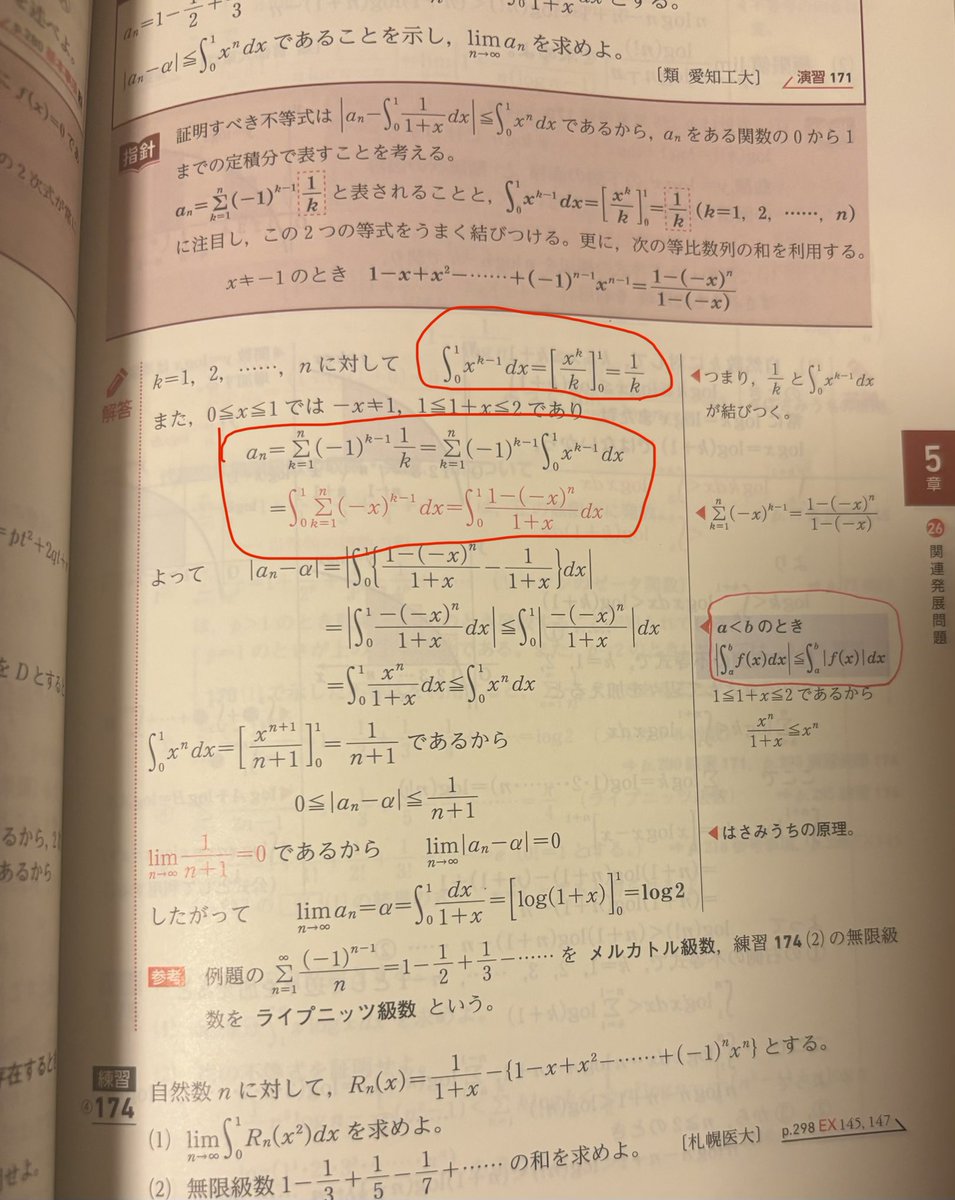 a_n=1-\frac{1}{2}+\frac{}{3}
\int_0^1 1+x とする。
|a_n-α|≦\int_0^1 x^n dx であることを示し，\lim_{n→∞} a_n を求めよ。
〔類 愛知工大〕 演習 171
指針 証明すべき不等式は |a_n-\int_0^1 \frac{1}{1+x}dx|≦\int_0^1 x^n dx であるから，a_n をある関数の 0 から 1
までの定積分で表すことを考える。
a_n=\sum_{k=1}^{n}(-1)^{k-1}\frac{1}{k} と表されることと，\int_0^1 x^{k-1}dx=[\frac{x^k}{k}]_0^1=\frac{1}{k} (k=1, 2, ……, n)
に注目し，この 2 つの等式をうまく結びつける。更に，次の等比数列の和を利用する。
x≠-1 のとき 1-x+x^2-……+(-1)^{n-1}x^{n-1}=\frac{1-(-x)^n}{1-(-x)}
解答
k=1, 2, ……, n に対して \int_0^1 x^{k-1}dx=[\frac{x^k}{k}]_0^1=\frac{1}{k}
◀つまり，\frac{1}{k} と \int_0^1 x^{k-1}dx
が結びつく。
また，0≦x≦1 では -x≠1, 1≦1+x≦2 であり
a_n=\sum_{k=1}^{n}(-1)^{k-1}\frac{1}{k}=\sum_{k=1}^{n}(-1)^{k-1}\int_0^1 x^{k-1}dx
=\int_0^1 \sum_{k=1}^{n}(-x)^{k-1}dx=\int_0^1 \frac{1-(-x)^n}{1+x}dx
◀\sum_{k=1}^{n}(-x)^{k-1}=\frac{1-(-x)^n}{1-(-x)}
よって |a_n-α|=|\int_0^1 {\frac{1-(-x)^n}{1+x}-\frac{1}{1+x}}dx|
=|\int_0^1 \frac{-(-x)^n}{1+x}dx|≦\int_0^1 |\frac{-(-x)^n}{1+x}|dx
◀a<b のとき
|\int_a^b f(x)dx|≦\int_a^b |f(x)|dx
=\int_0^1 \frac{x^n}{1+x}dx≦\int_0^1 x^n dx
1≦1+x≦2 であるから
\frac{x^n}{1+x}≦x^n
\int_0^1 x^n dx=[\frac{x^{n+1}}{n+1}]_0^1=\frac{1}{n+1} であるから
0≦|a_n-α|≦\frac{1}{n+1}
\lim_{n→∞}\frac{1}{n+1}=0 であるから \lim_{n→∞}|a_n-α|=0
◀はさみうちの原理。
したがって \lim_{n→∞} a_n=α=\int_0^1 \frac{dx}{1+x}=[log(1+x)]_0^1=log2
参考 例題の \sum_{n=1}^{∞}\frac{(-1)^{n-1}}{n}=1-\frac{1}{2}+\frac{1}{3}-…… を メルカトル級数，練習 174 (2) の無限級
数を ライプニッツ級数 という。
練習
④174
自然数 n に対して，R_n(x)=\frac{1}{1+x}-{1-x+x^2-……+(-1)^n x^n} とする。
(1) \lim_{n→∞}\int_0^1 R_n(x^2)dx を求めよ。
(2) 無限級数 1-\frac{1}{3}+\frac{1}{5}-\frac{1}{7}+…… の和を求めよ。
［札幌医大］ p.298 EX 145, 147
5
章
26
関連発展問題